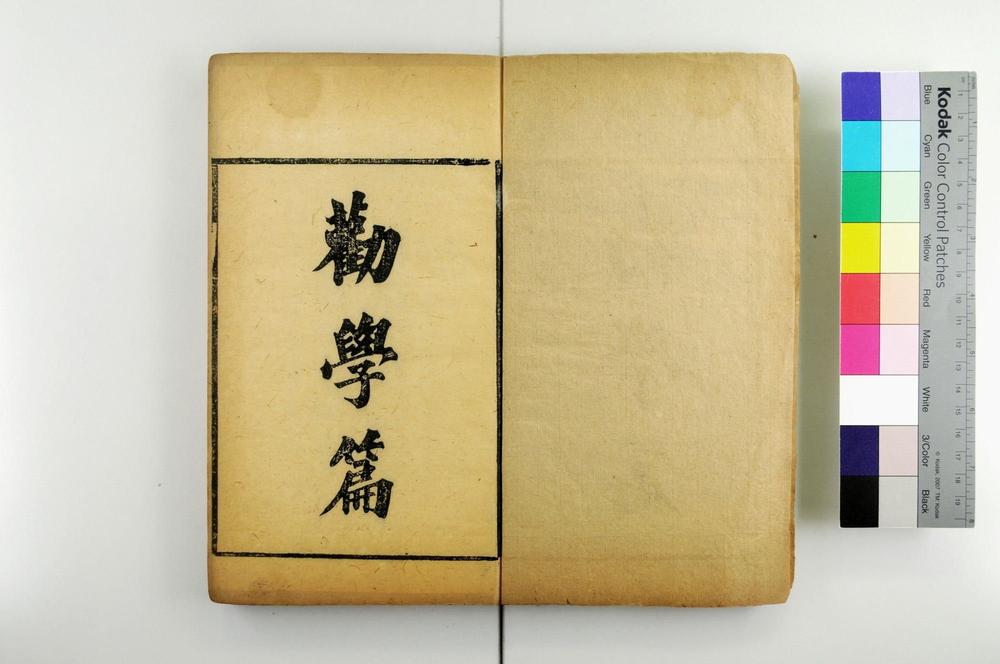 勸學篇
Kodak Color Control Patches
Blue
Cyan
Green
Yellow
Red
Magenta
White
3/Color
Black
© Kodak, 2007 TM: Kodak
1
2
3
4
5
6
7
8
9
10
11
12
13
14
15
16
17
18
19